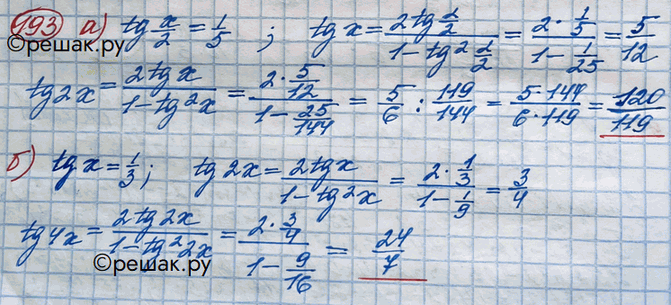 193 а) tg x/2 = 1/5 ; tg x = (2tg x/2)/(1 - tg² x/2) = (2 · 1/5)/(1 - 1/25) = 5/12
©решак.ру
tg2x = (2tgx)/(1 - tg²x) = (2 · 5/12)/(1 - 25/144) = 5/6 : 119/144 = (5·144)/(6·119) = 120/119
б) tg x = 1/3 ; tg 2x = (2tgx)/(1 - tg²x) = (2 · 1/3)/(1 - 1/9) = 3/4
tg4x = (2tg2x)/(1 - tg²2x) = (2 · 3/4)/(1 - 9/16) = 24/7
©решак.ру